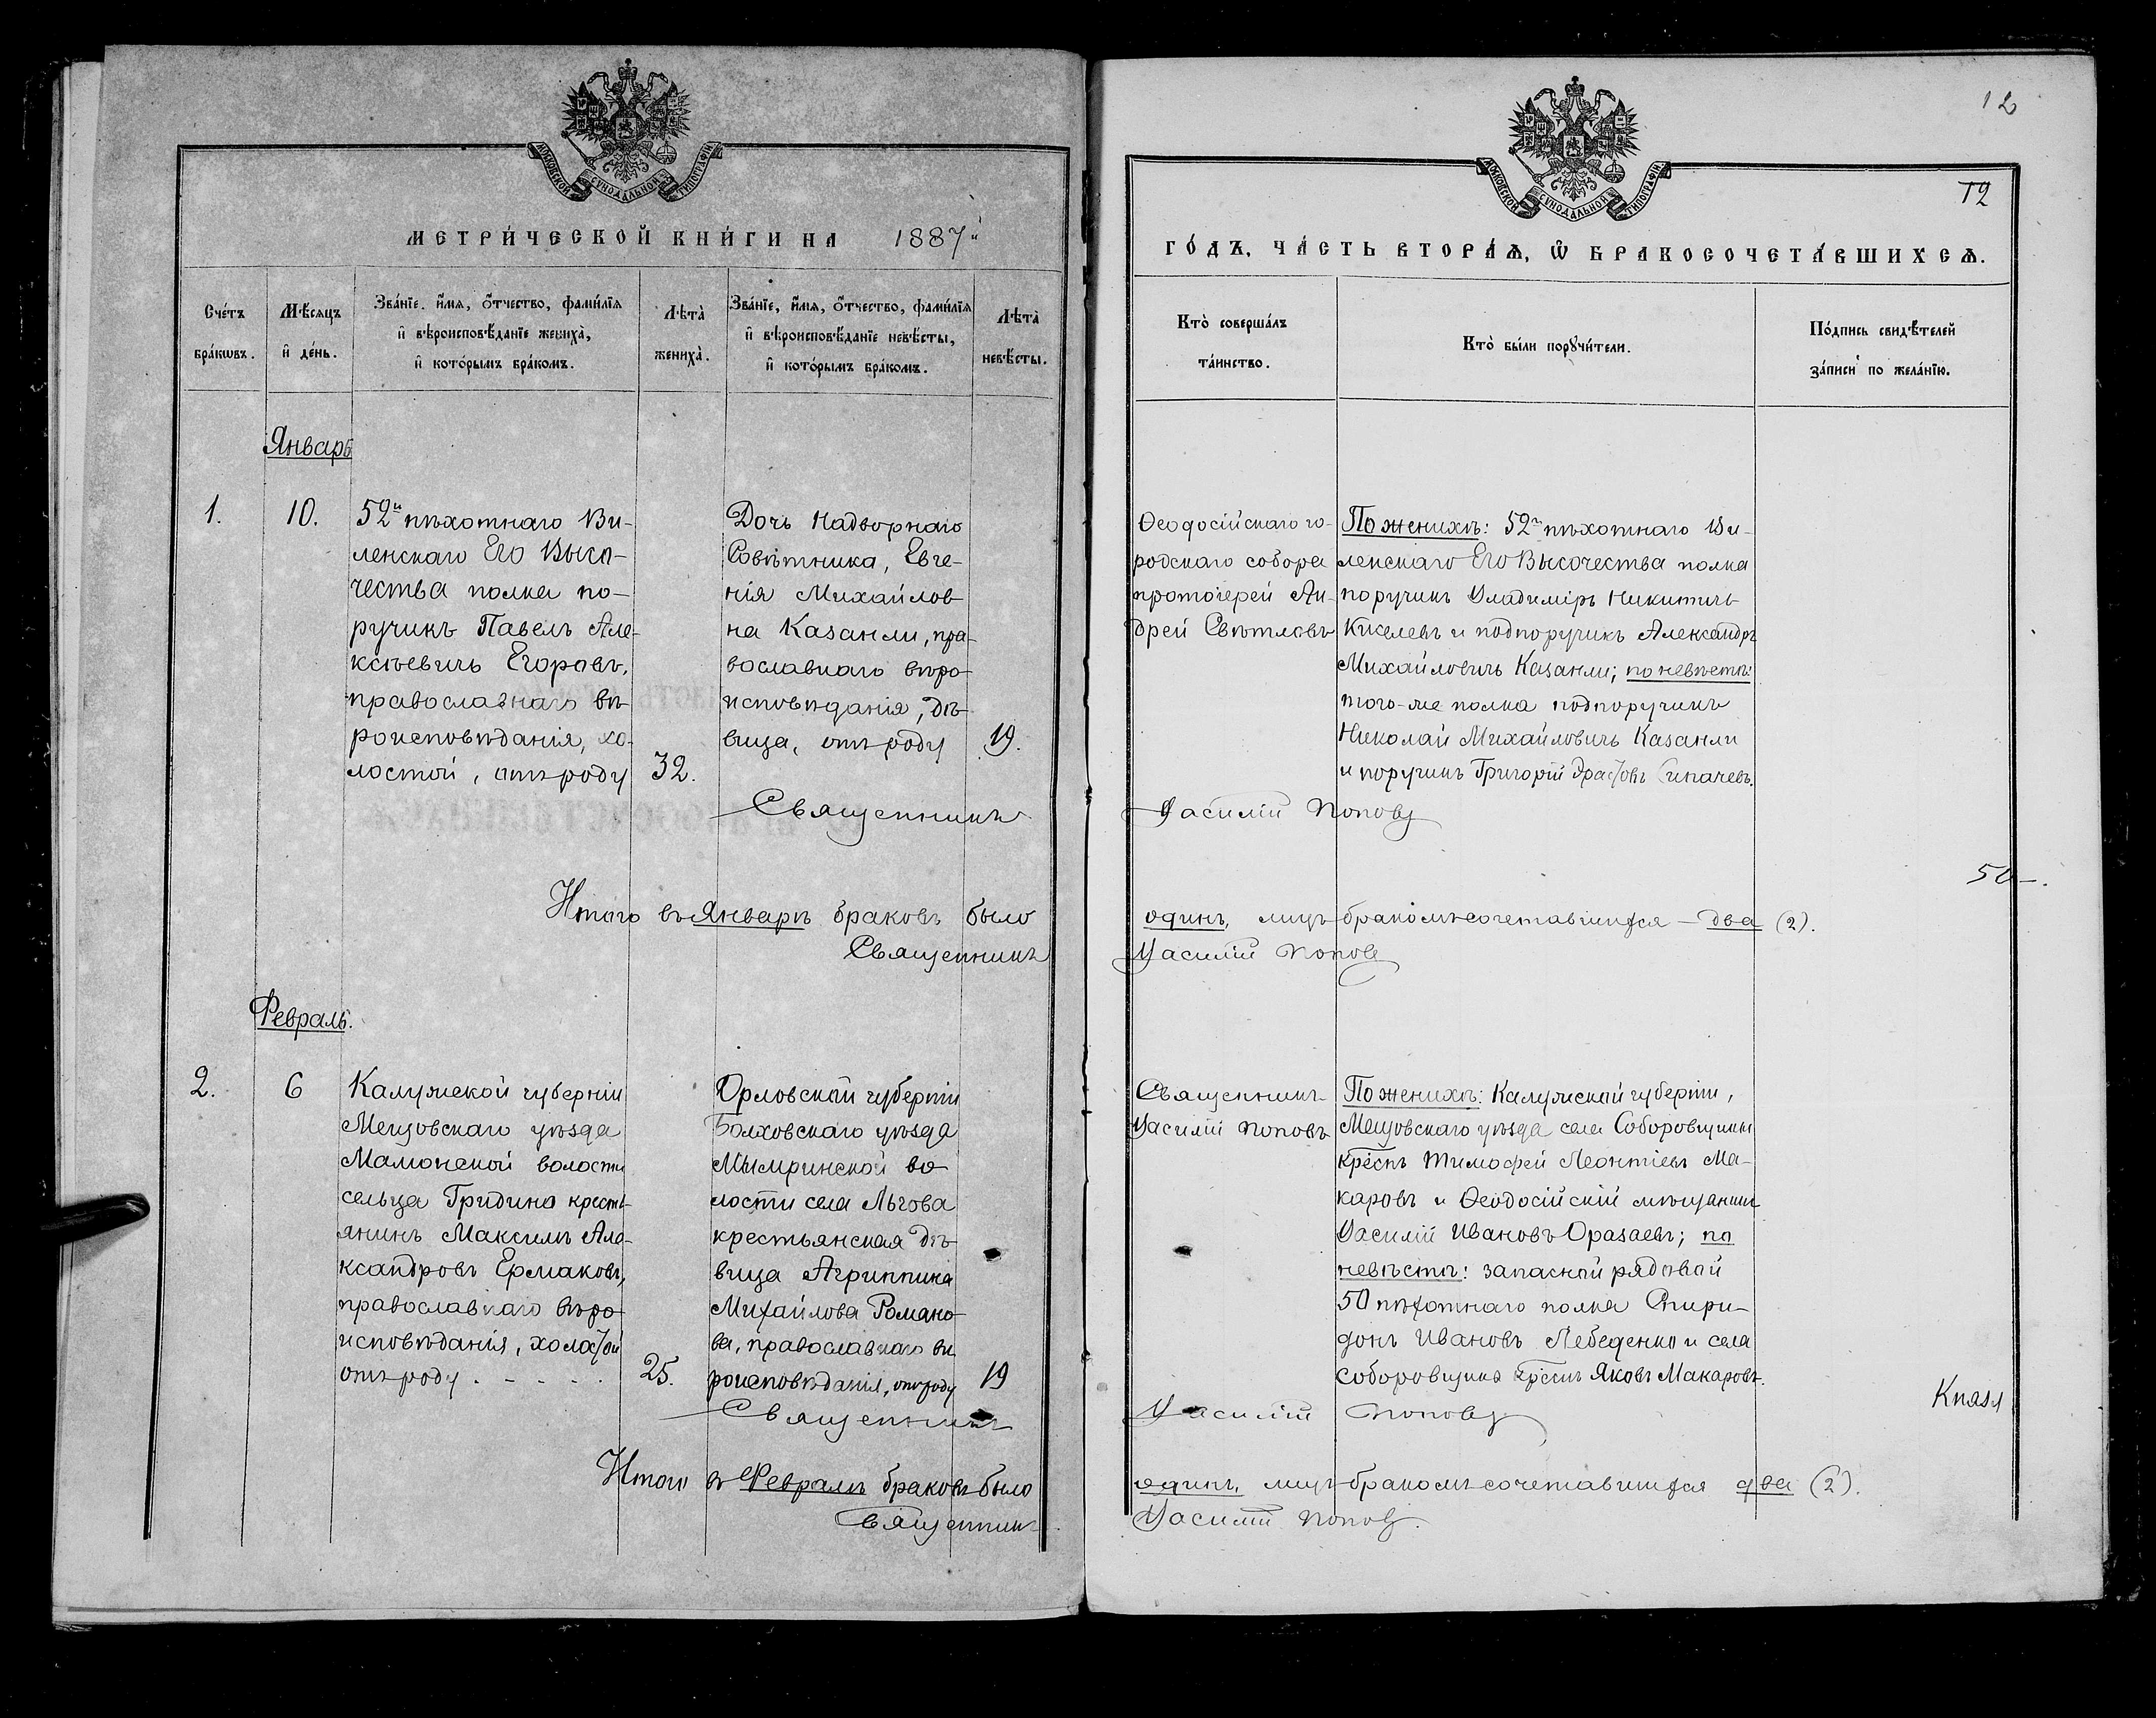 МОСКОВСКОЙ СѴНОДАЛЬНОЙ ТИПОГРАФІИ
МЕТРИ́ЧЕСКОЙ КНИ́ГИ НА 1887й
Сче́тъ бра́кωвъ.
Мѣ́сяцъ и҆ де́нь.
Зва́нїе. и҆́мѧ, ѻ҆́тчество, фами́лїѧ
и҆ вѣроисповѣ́данїе жениха̀,
и҆ кото́рымъ бра́комъ.
Лѣта̀ жениха̀.
Зва́нїе, и҆́мѧ, ѻ҆́тчество, фами́лїѧ
и҆ вѣроисповѣ́данїе невѣ́сты,
и҆ кото́рымъ бра́комъ.
Лѣта̀ невѣ́сты.
Январь
1.
10.
52й пѣхотнаго Ви-
ленскаго Его Высо-
чества полка по-
ручикъ Павелъ Але-
ксѣевичъ Егоровъ,
православнаго вѣ-
роисповѣданія, хо-
лостой, отъ роду
32.
Дочь Надворнаго
Совѣтника, Евге-
нія Михайлов-
на Казанли, пра-
вославнаго вѣро-
исповѣданія, дѣ-
вица, отъ роду
19.
Священникъ
Итого въ Январѣ браковъ было
Священникъ
Февраль.
2.
6
Калужской губерніи
Мещовскаго уѣзда
Мамонской волости
сельца Гридина кресть-
янинъ Максимъ Але-
ксандровъ Ермаковъ,
православнаго вѣро-
исповѣданія, холостой
отъ роду . - - - -
25.
Орловской губерніи
Болховскаго уѣзда
Мымринской во-
лости села Льгова
крестьянская дѣ-
вица Агриппина
Михайлова Романо-
ва, православнаго вѣ-
роисповѣданія, отъ роду
19
Священникъ
Итого въ Февралѣ браковъ было
Священникъ
12
12
МОСКОВСКОЙ СѴНОДАЛЬНОЙ ТИПОГРАФІИ
ГО́ДЪ, ЧА́СТЬ ВТОРА́Ѧ, Ѽ БРАКОСОЧЕТА́ВШИХСѦ.
Кто̀ соверша́лъ
та́инство.
Кто̀ бы́ли порꙋчи́тели.
По́дпись свидѣ́телей
за́писи по жела́нїю.
Ѳеодосійскаго го-
родскаго собора
протоіерей Ан-
дрей Свѣтловъ
По женихѣ: 52й пѣхотнаго Ви-
ленскаго Его Высочества полка
поручикъ Владиміръ Никитичъ
Киселевъ и подпоручикъ Александръ
Михайловичъ Казанли; по невѣстѣ:
того-же полка подпоручикъ
Николай Михайловичъ Казанли
и поручикъ Григорій Сипачевъ.
Василій Поповъ
50-.
одинъ, лицъ бракомъ сочетавшихся - два (2).
Василій Поповъ
Священникъ
Василій Поповъ
По женихѣ: Калужской губерніи,
Мещовскаго уѣзда села Соборовщины
крестъ Тимофей Леонтіевъ Ма-
каровъ и Ѳеодосійскій мѣщанинъ
Василій Ивановъ Оразаевъ; по
невѣстѣ: запасной рядовой
50 пѣхотнаго полка Спири-
донъ Ивановъ Лебеденко и села
Соборовщина крестъ Яковъ Макаровъ.
Князя
Василій Поповъ
одинъ, лицъ бракомъ сочетавшихся два (2).
Василій Поповъ.